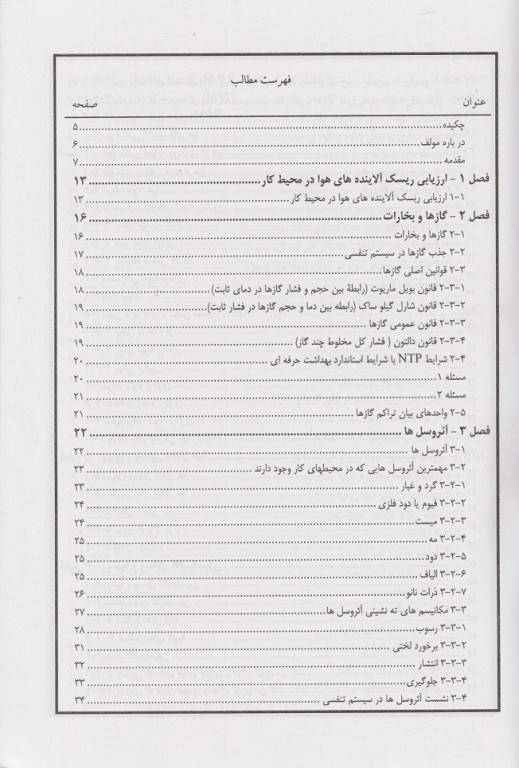 فهرست مطالب
عنوان صفحه
چکیده ..... ۵
در باره مولف ..... ۶
مقدمه ..... ۷
فصل ۱ - ارزیابی ریسک آلاینده های هوا در محیط کار ..... ۱۳
۱-۱ ارزیابی ریسک آلاینده های هوا در محیط کار ..... ۱۳
فصل ۲ - گازها و بخارات ..... ۱۶
۲-۱ گازها و بخارات ..... ۱۶
۲-۲ جذب گازها در سیستم تنفسی ..... ۱۷
۲-۳ قوانین اصلی گازها ..... ۱۸
۲-۳-۱ قانون بویل ماریوت (رابطۀ بین حجم و فشار گازها در دمای ثابت) ..... ۱۸
۲-۳-۲ قانون شارل گیلو ساک (رابطه بین دما و حجم گازها در فشار ثابت) ..... ۱۹
۲-۳-۳ قانون عمومی گازها ..... ۱۹
۲-۳-۴ قانون دالتون ( فشار کل مخلوط چند گاز) ..... ۱۹
۲-۴ شرایط NTP یا شرایط استاندارد بهداشت حرفه ای ..... ۲۰
مسئله ۱ ..... ۲۰
مسئله ۲ ..... ۲۱
۲-۵ واحدهای بیان تراکم گازها ..... ۲۱
فصل ۳ - آئروسل ها ..... ۲۲
۳-۱ آئروسل ها ..... ۲۲
۳-۲ مهمترین آئروسل هایی که در محیطهای کار وجود دارند ..... ۲۳
۳-۲-۱ گرد و غبار ..... ۲۳
۳-۲-۲ فیوم یا دود فلزی ..... ۲۴
۳-۲-۳ میست ..... ۲۴
۳-۲-۴ مه ..... ۲۵
۳-۲-۵ دود ..... ۲۵
۳-۲-۶ الیاف ..... ۲۵
۳-۲-۷ ذرات نانو ..... ۲۶
۳-۳ مکانیسم های ته نشینی آئروسل ها ..... ۲۷
۳-۳-۱ رسوب ..... ۲۸
۳-۳-۲ برخورد لختی ..... ۳۱
۳-۳-۳ انتشار ..... ۳۲
۳-۳-۴ جلوگیری ..... ۳۳
۳-۴ نشست آئروسل ها در سیستم تنفسی ..... ۳۴